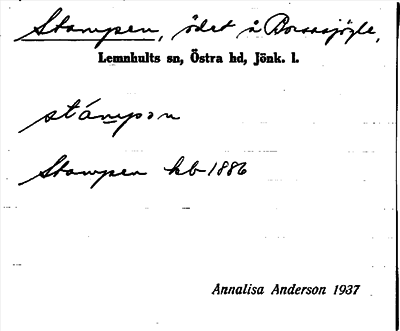 Stampen, ödet å Borssajöjle,
Lemnhults sn, Östra hd, Jönk. l.
stámpən
Stampen kb 1886
Annalisa Anderson 1937